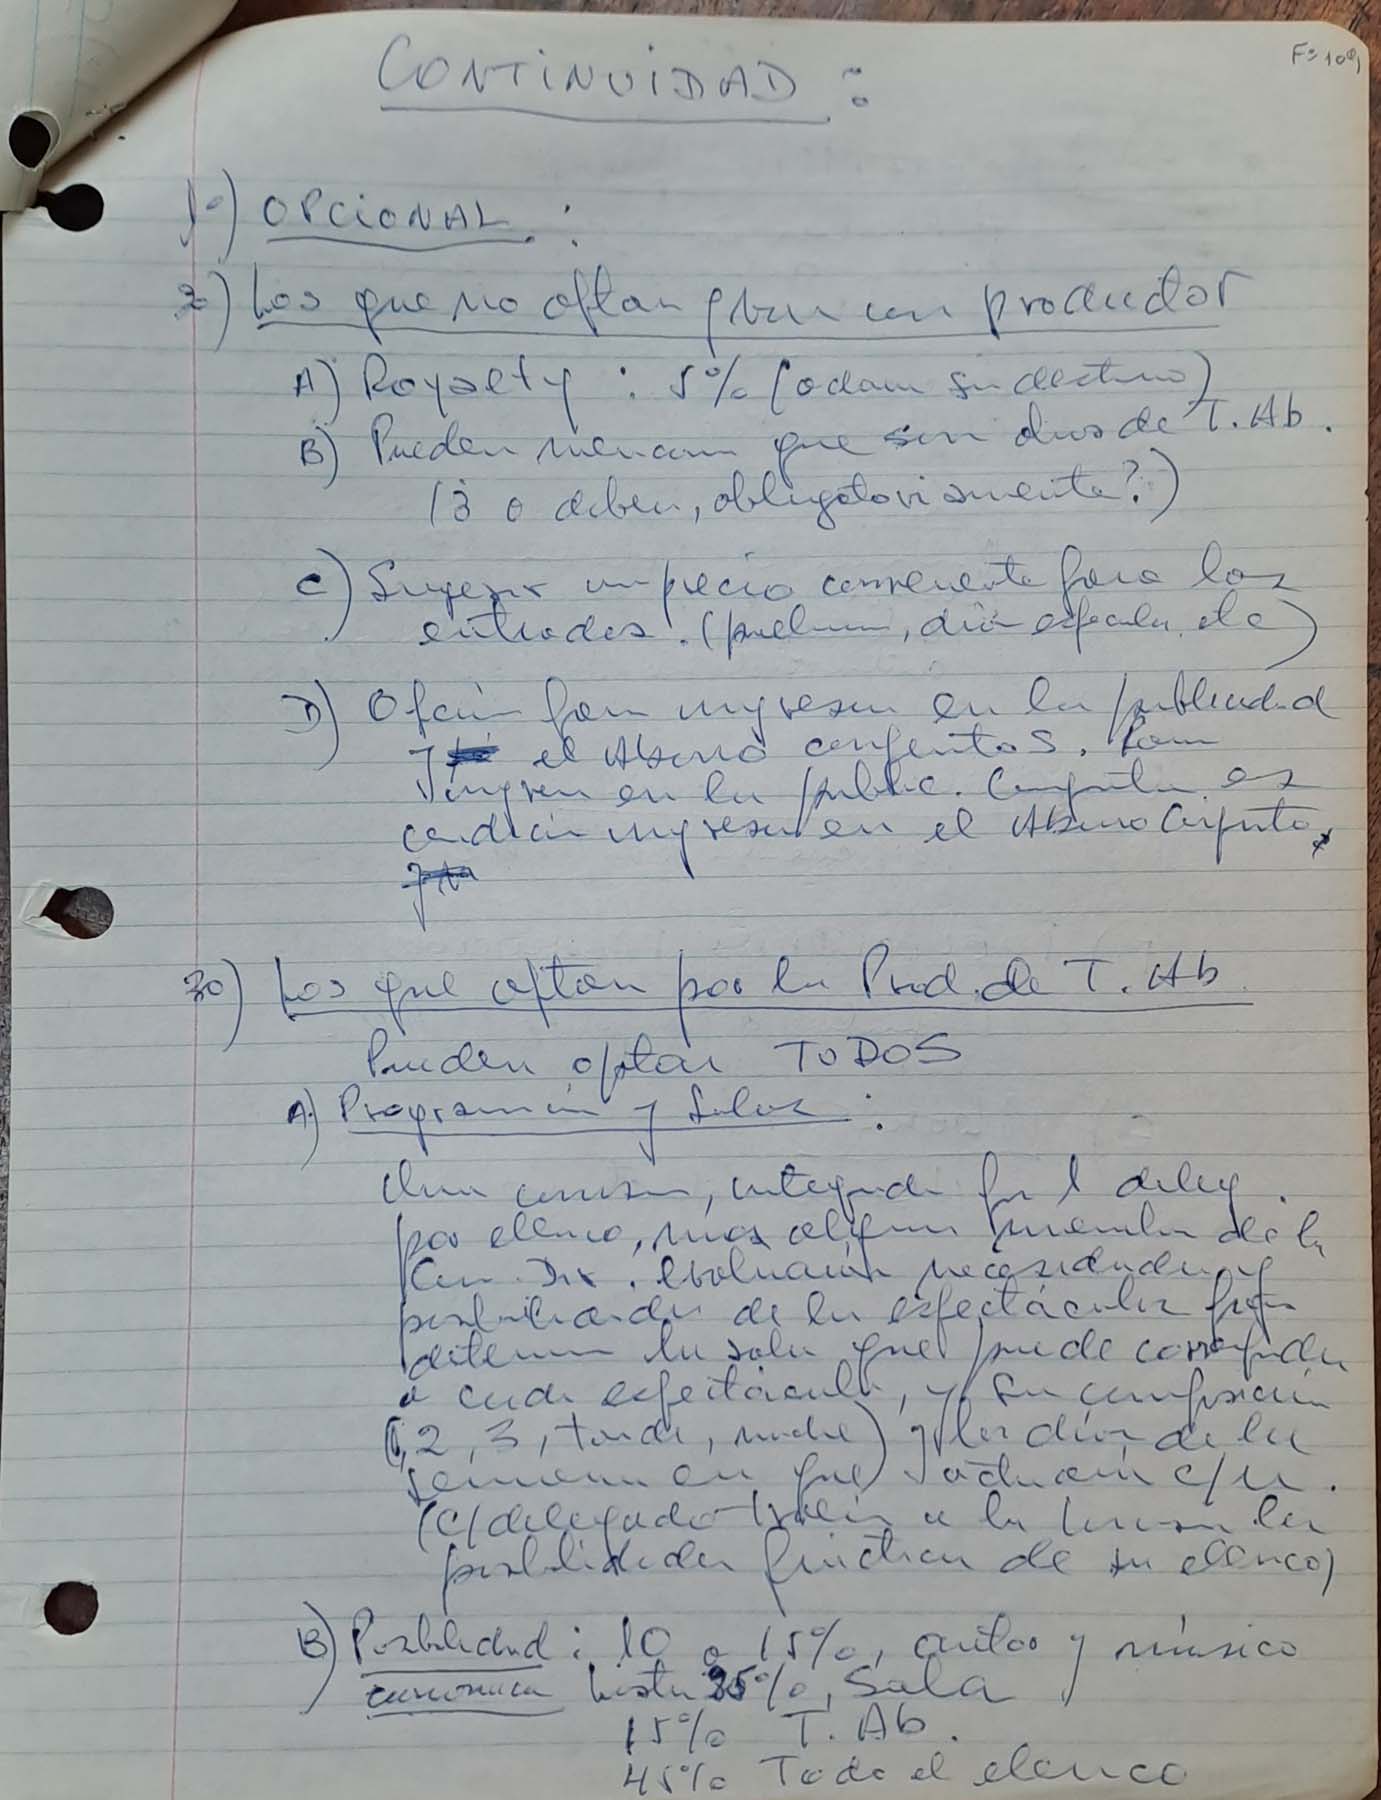 F=109
CONTINUIDAD:
1º) OPCIONAL:
2º) Los que no optan y van con productor
A) Royalty: 5% (odam su destino)
B) Pueden mencionar que son obras de T. Ab.
(ó deben, obligatoriamente?)
C) Sugerir un precio conveniente para las
entradas. (popular, día espectador, etc)
D) Opción para ingresar en la publicidad
y el Abono conjuntos. Para
ingresar en la public. conjunta es
condición ingresar en el Abono Conjunto.
3º) Los que optan por la Prod. de T. Ab
Pueden optar TODOS
A) Programación y Salas:
Una comisión, integrada por 1 deleg.
por elenco, más algún miembro de la
Com. Dir. evaluarán necesidades y
posibilidades de los espectáculos para
determinar la sala que puede corresponder
a cada espectáculo, y su composición
(1, 2, 3, tarde, noche) y los días de la
semana en que actuarán c/u.
(c/delegado traerá a la reunión las
posibilidades de su elenco)
B) Posibilidad económica: 10 a 15%, autor y músico
hasta 35%, Sala
15% T. Ab.
45% Todo el elenco